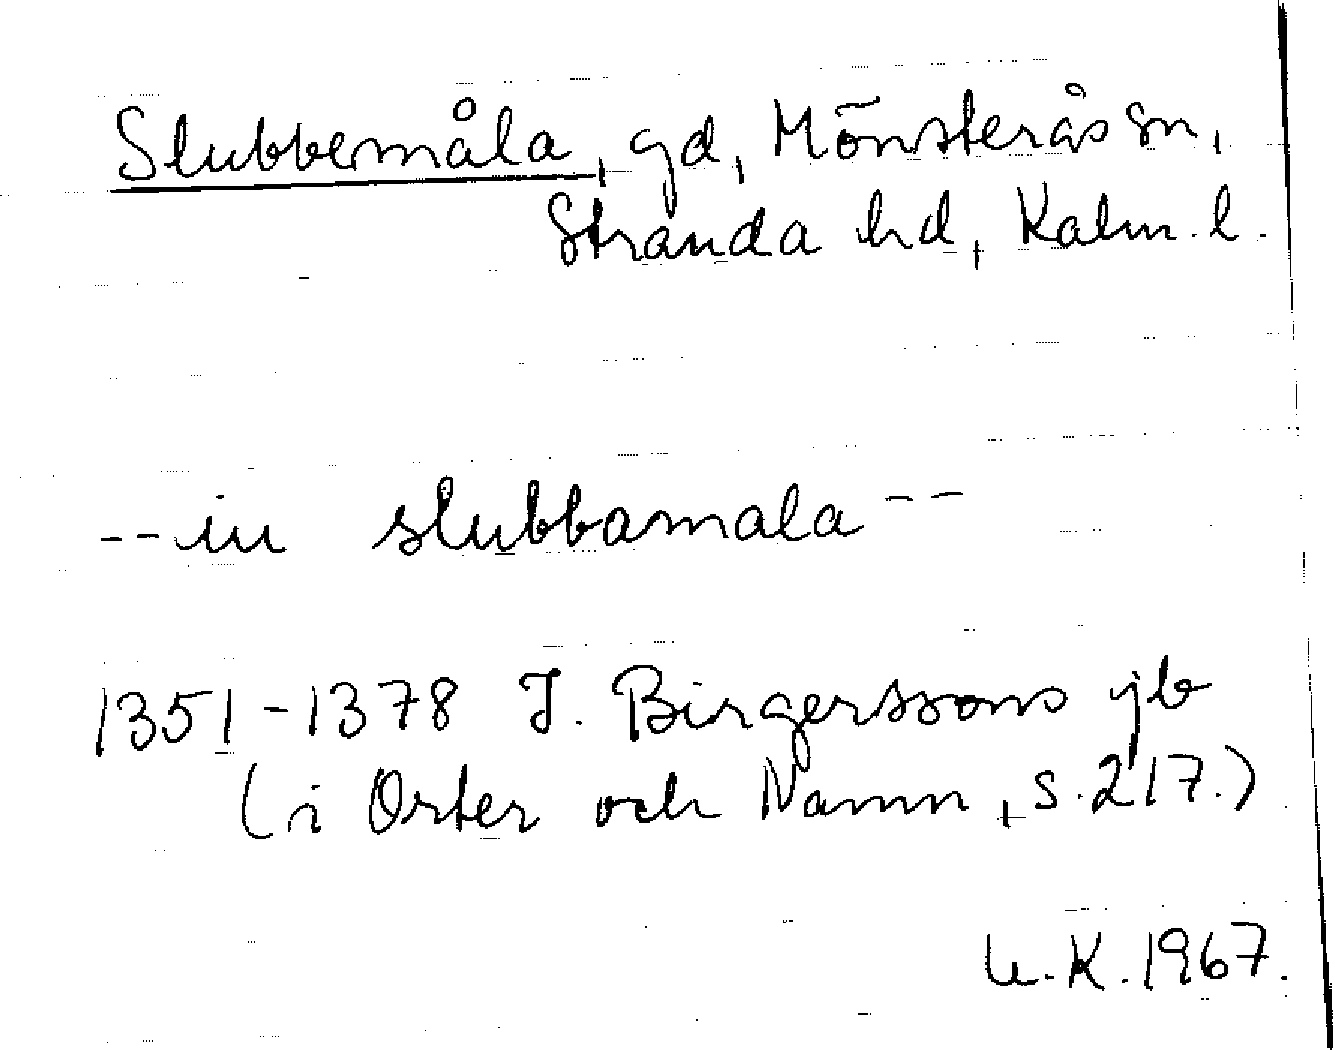 Slubbemåla, gd, Mönsterås sn,
Stranda hd, Kalm. l.
-- in slubbamala --
1351-1378 J. Birgerssons jb
(i Orter och Namn, s. 217.)
U.K. 1967.